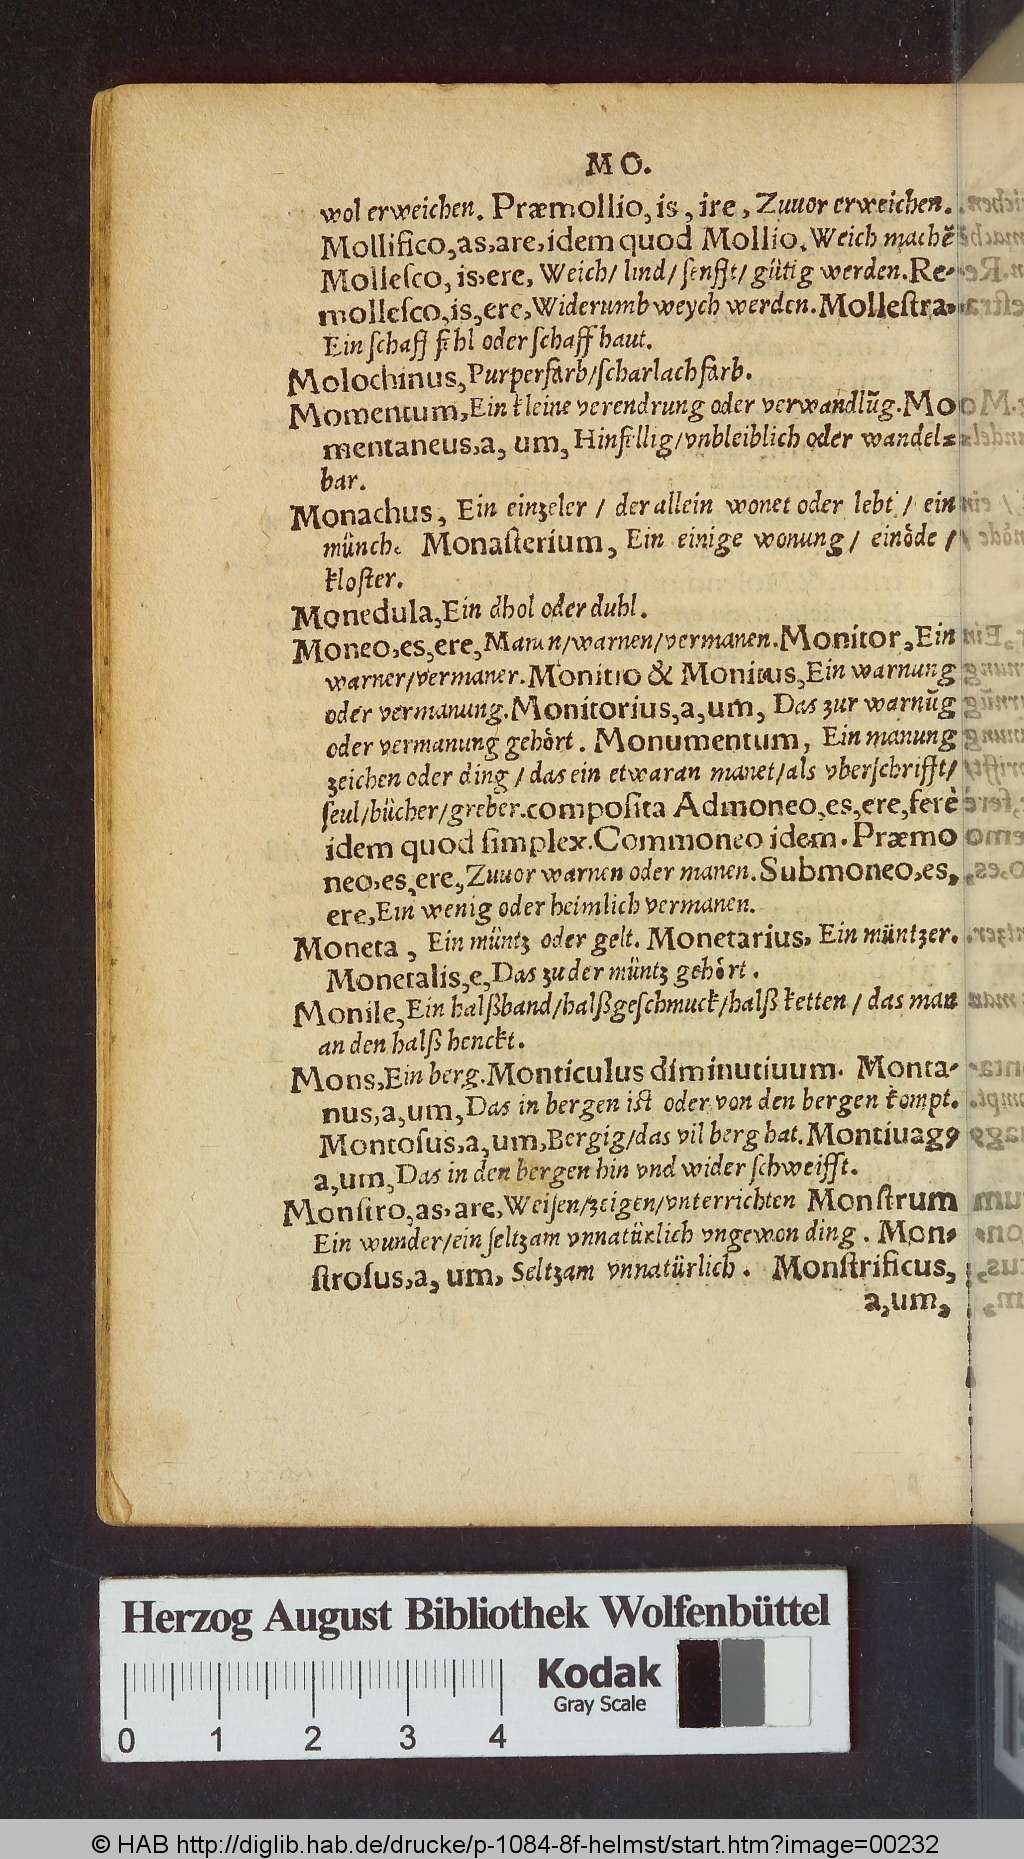 MO.
wol erweichen. Præmollio, is, ire, Zuuor erweichen.
Mollifico, as, are, idem quod Mollio. Weich machē
Molleſco, is, ere, Weich/ lind/ ſenfft/ gütig werden. Re-
molleſco, is, ere, Widerumb weych werden. Molleſtra,
Ein ſchaff fehl oder ſchaff haut.
Molochinus, Purperfarb/ ſcharlachfarb.
Momentum, Ein kleine verendrung oder verwandlūg. Mo
mentaneus, a, um, Hinfellig/ vnbleiblich oder wandel-
bar.
Monachus, Ein einzeler / der allein wonet oder lebt / ein
münch. Monaſterium, Ein einige wonung/ einöde /
kloſter.
Monedula, Ein dhol oder duhl.
Moneo, es, ere, Manen/ warnen/ vermanen. Monitor, Ein
warner/ vermaner. Monitio & Monitus, Ein warnung
oder vermanung. Monitorius, a, um, Das zur warnūg
oder vermanung gehört. Monumentum, Ein manung
zeichen oder ding / das ein etwaran manet/ als vberſchrifft/
ſeul/ bücher/ greber. compoſita Admoneo, es, ere, ferè
idem quod ſimplex. Commoneo idem. Præmo
neo, es, ere, Zuuor warnen oder manen. Submoneo, es,
ere, Ein wenig oder heimlich vermanen.
Moneta, Ein müntz oder gelt. Monetarius, Ein müntzer.
Monetalis, e, Das zu der müntz gehört.
Monile, Ein halßband/ halßgeſchmuck/ halß ketten / das man
an den halß henckt.
Mons, Ein berg. Monticulus diminutiuum. Monta-
nus, a, um, Das in bergen iſt oder von den bergen kompt.
Montoſus, a, um, Bergig/ das vil berg hat. Montiuagꝰ
a, um, Das in den bergen hin vnd wider ſchweifft.
Monſtro, as, are, Weiſen/ zeigen/ vnterrichten Monſtrum
Ein wunder/ ein ſeltzam vnnatürlich vngewon ding. Mon-
ſtroſus, a, um, Seltzam vnnatürlich. Monſtrificus,
a, um,
Herzog August Bibliothek Wolfenbüttel
Kodak
Gray Scale
0 1 2 3 4
© HAB http://diglib.hab.de/drucke/p-1084-8f-helmst/start.htm?image=00232